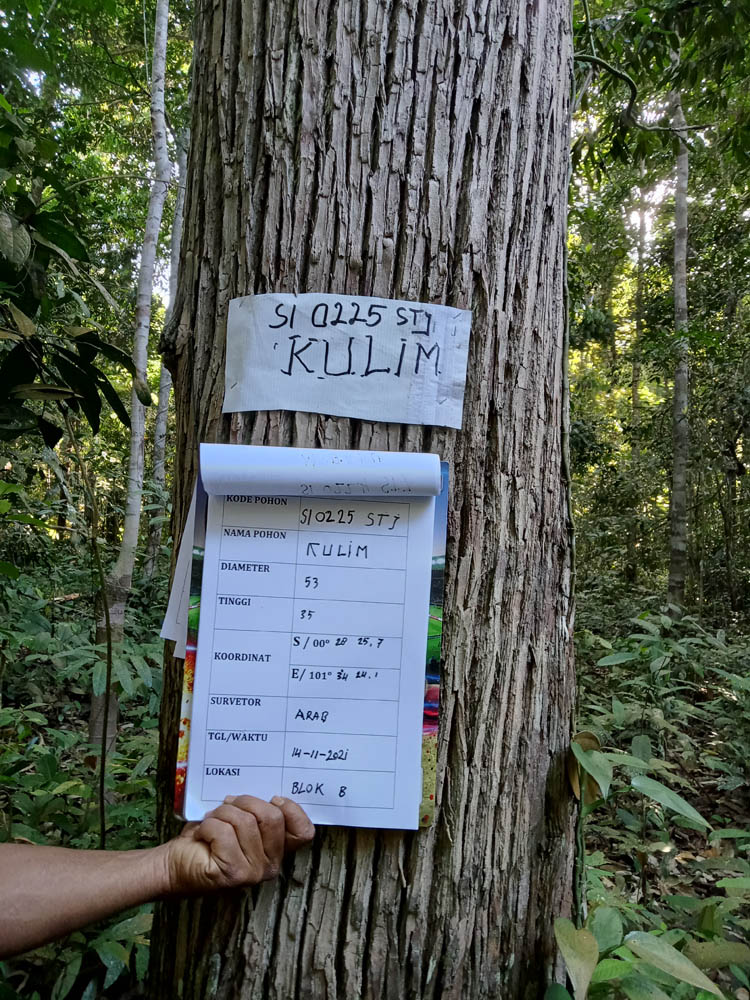 SI 0225 STJ
KULIM
KODE POHON SI 0225 STJ
NAMA POHON KULIM
DIAMETER 53
TINGGI 35
KOORDINAT S / 00° 28 25,7
E/ 101° 34 24.1
SURVETOR ARAB
TGL/WAKTU 14-11-2021
LOKASI BLOK B